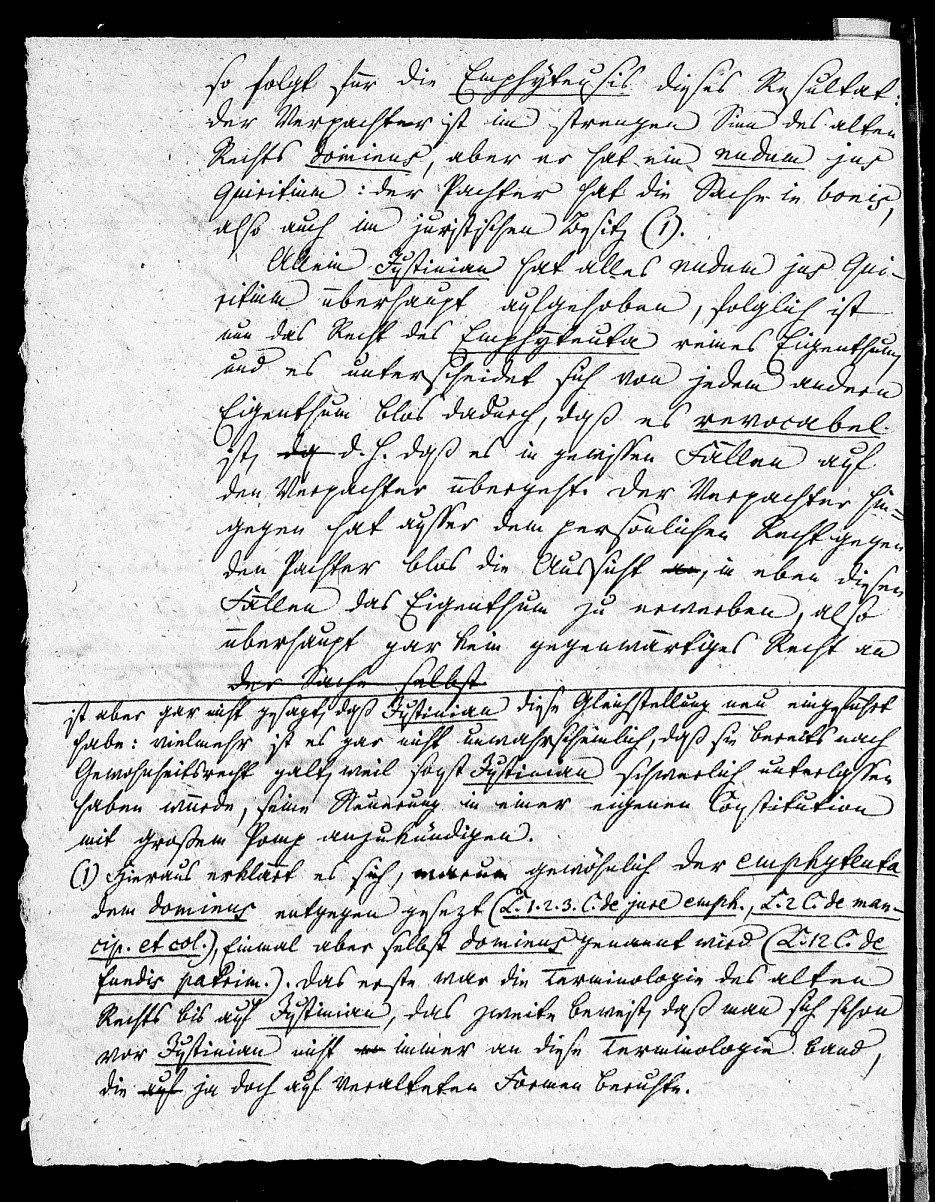 so folgt für die Emphyteusis dieses Resultat:
der Verpachter ist im strengen Sinn des alten
Rechts dominus, aber er hat ein nudum jus
Quiritium: der Pachter hat die Sache in bonis,
also auch im juristischen Besitz (1).
Allein Justinian hat alles nudum jus Qui-
ritium überhaupt aufgehoben, folglich ist
nun das Recht des Emphyteuta reines Eigenthum,
und es unterscheidet sich von jedem andern
Eigenthum blos dadurch, daß es revocabel
ist, da d. h. daß es in gewissen Fällen auf
den Verpachter übergeht. Der Verpachter hin-
gegen hat ausser dem persönlichen Recht gegen
den Pachter blos die Aussicht, in eben diesen
Fällen das Eigenthum zu erwerben, also
überhaupt gar kein gegenwärtiges Recht an
der Sache selbst
ist aber gar nicht gesagt, daß Justinian diese Gleichstellung neu eingeführt
habe: vielmehr ist es gar nicht unwahrscheinlich, daß sie bereits nach
Gewohnheitsrecht galt, weil sonst Justinian schwerlich unterlassen
haben würde, seine Neuerung in einer eigenen Constitution
mit großem Pomp anzukündigen.
(1) Hieraus erklärt es sich, warum gewöhnlich der emphyteuta
dem dominus entgegen gesezt (L. 1. 2. 3. C. de jure emph., L. 2 C. de man-
cip. et col.), Einmal aber selbst dominus genannt wird (L. 12 C. de
fundis patrim.). Das erste war die Terminologie des alten
Rechts bis auf Justinian, das zweite beweist, daß man sich schon
vor Justinian nicht immer an diese Terminologie band,
die auf ja doch auf veralteten Formen beruhte.